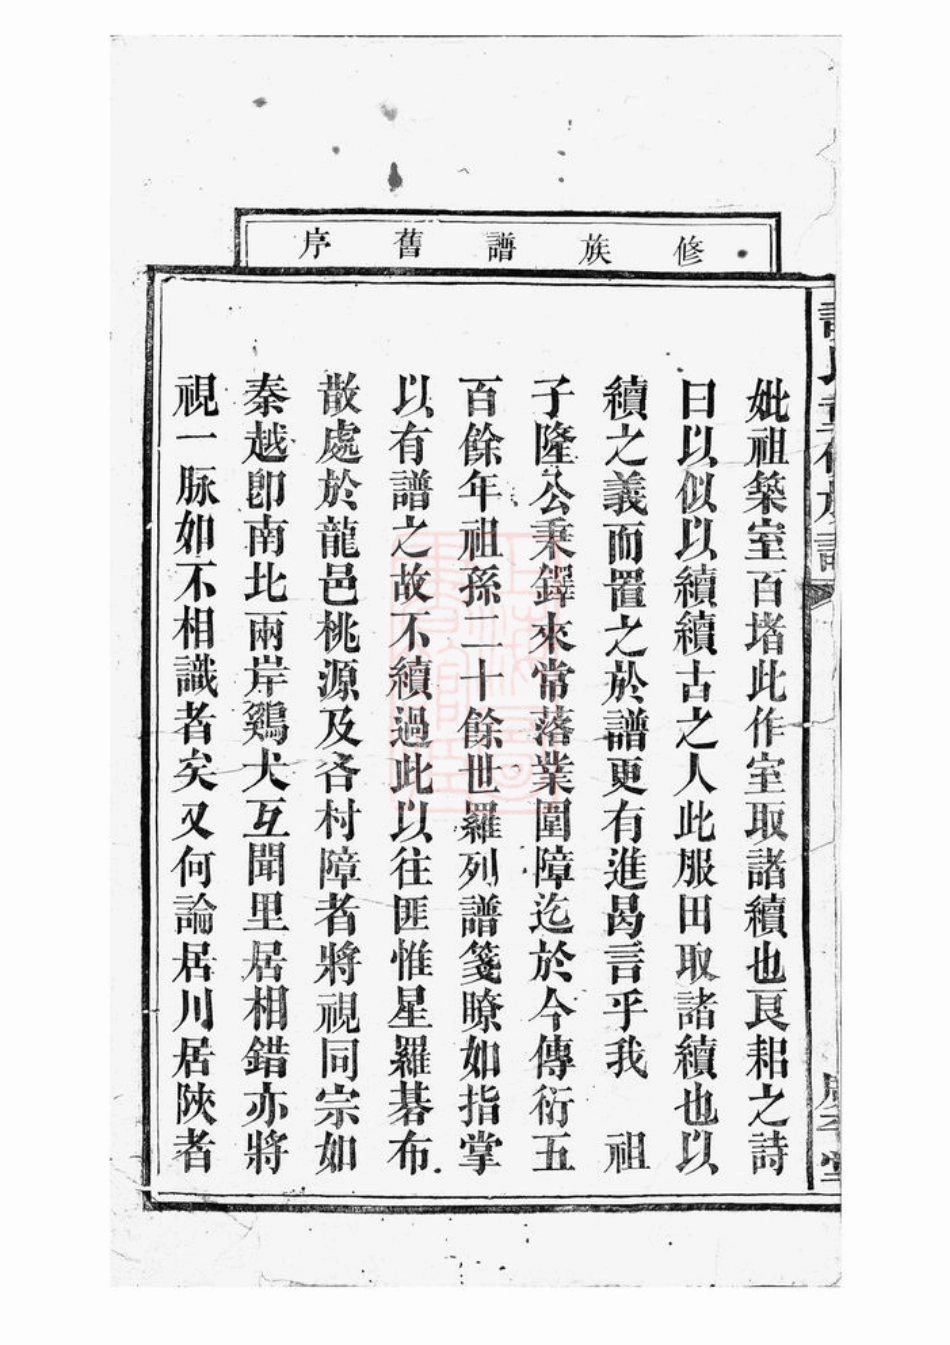 修族譜舊序
妣祖築室百堵此作室取諸續也良耜之詩
曰以似以續續古之人此服田取諸續也以
續之義而置之於譜更有進曷言乎我　祖
子隆公秉鐸來常落業圍障迄於今傳衍五
百餘年祖孫二十餘世羅列譜箋瞭如指掌
以有譜之故不續過此以往匪惟星羅碁布
散處於龍邑桃源及各村障者將視同宗如
秦越卽南北兩岸鷄犬互聞里居相錯亦將
視一脉如不相識者矣又何論居川居陝者